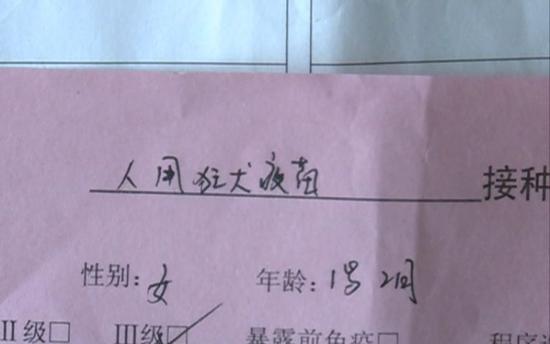 人用狂犬疫苗 接种
性别: 女 年龄: 1岁2月
II级□ III级☑ 暴露前免疫□ 程序